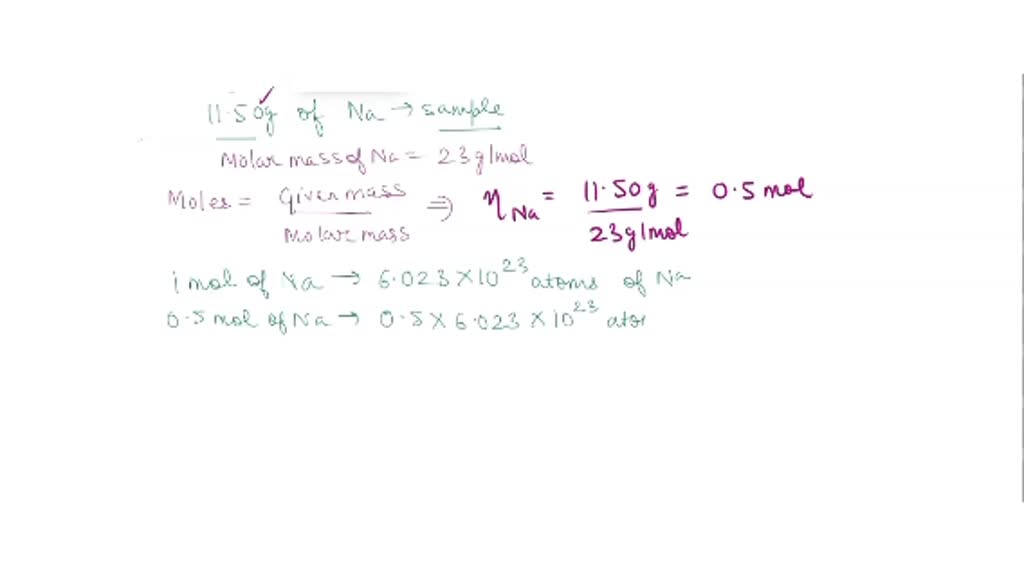 11.50g of Na → sample
Molar mass of Na = 23 g/mol
Moles = Given mass / Molar mass ⇒ η Na = 11.50 g / 23 g/mol = 0.5 mol
1 mol of Na → 6.023 × 10^23 atoms of Na
0.5 mol of Na → 0.5 × 6.023 × 10^23 ato